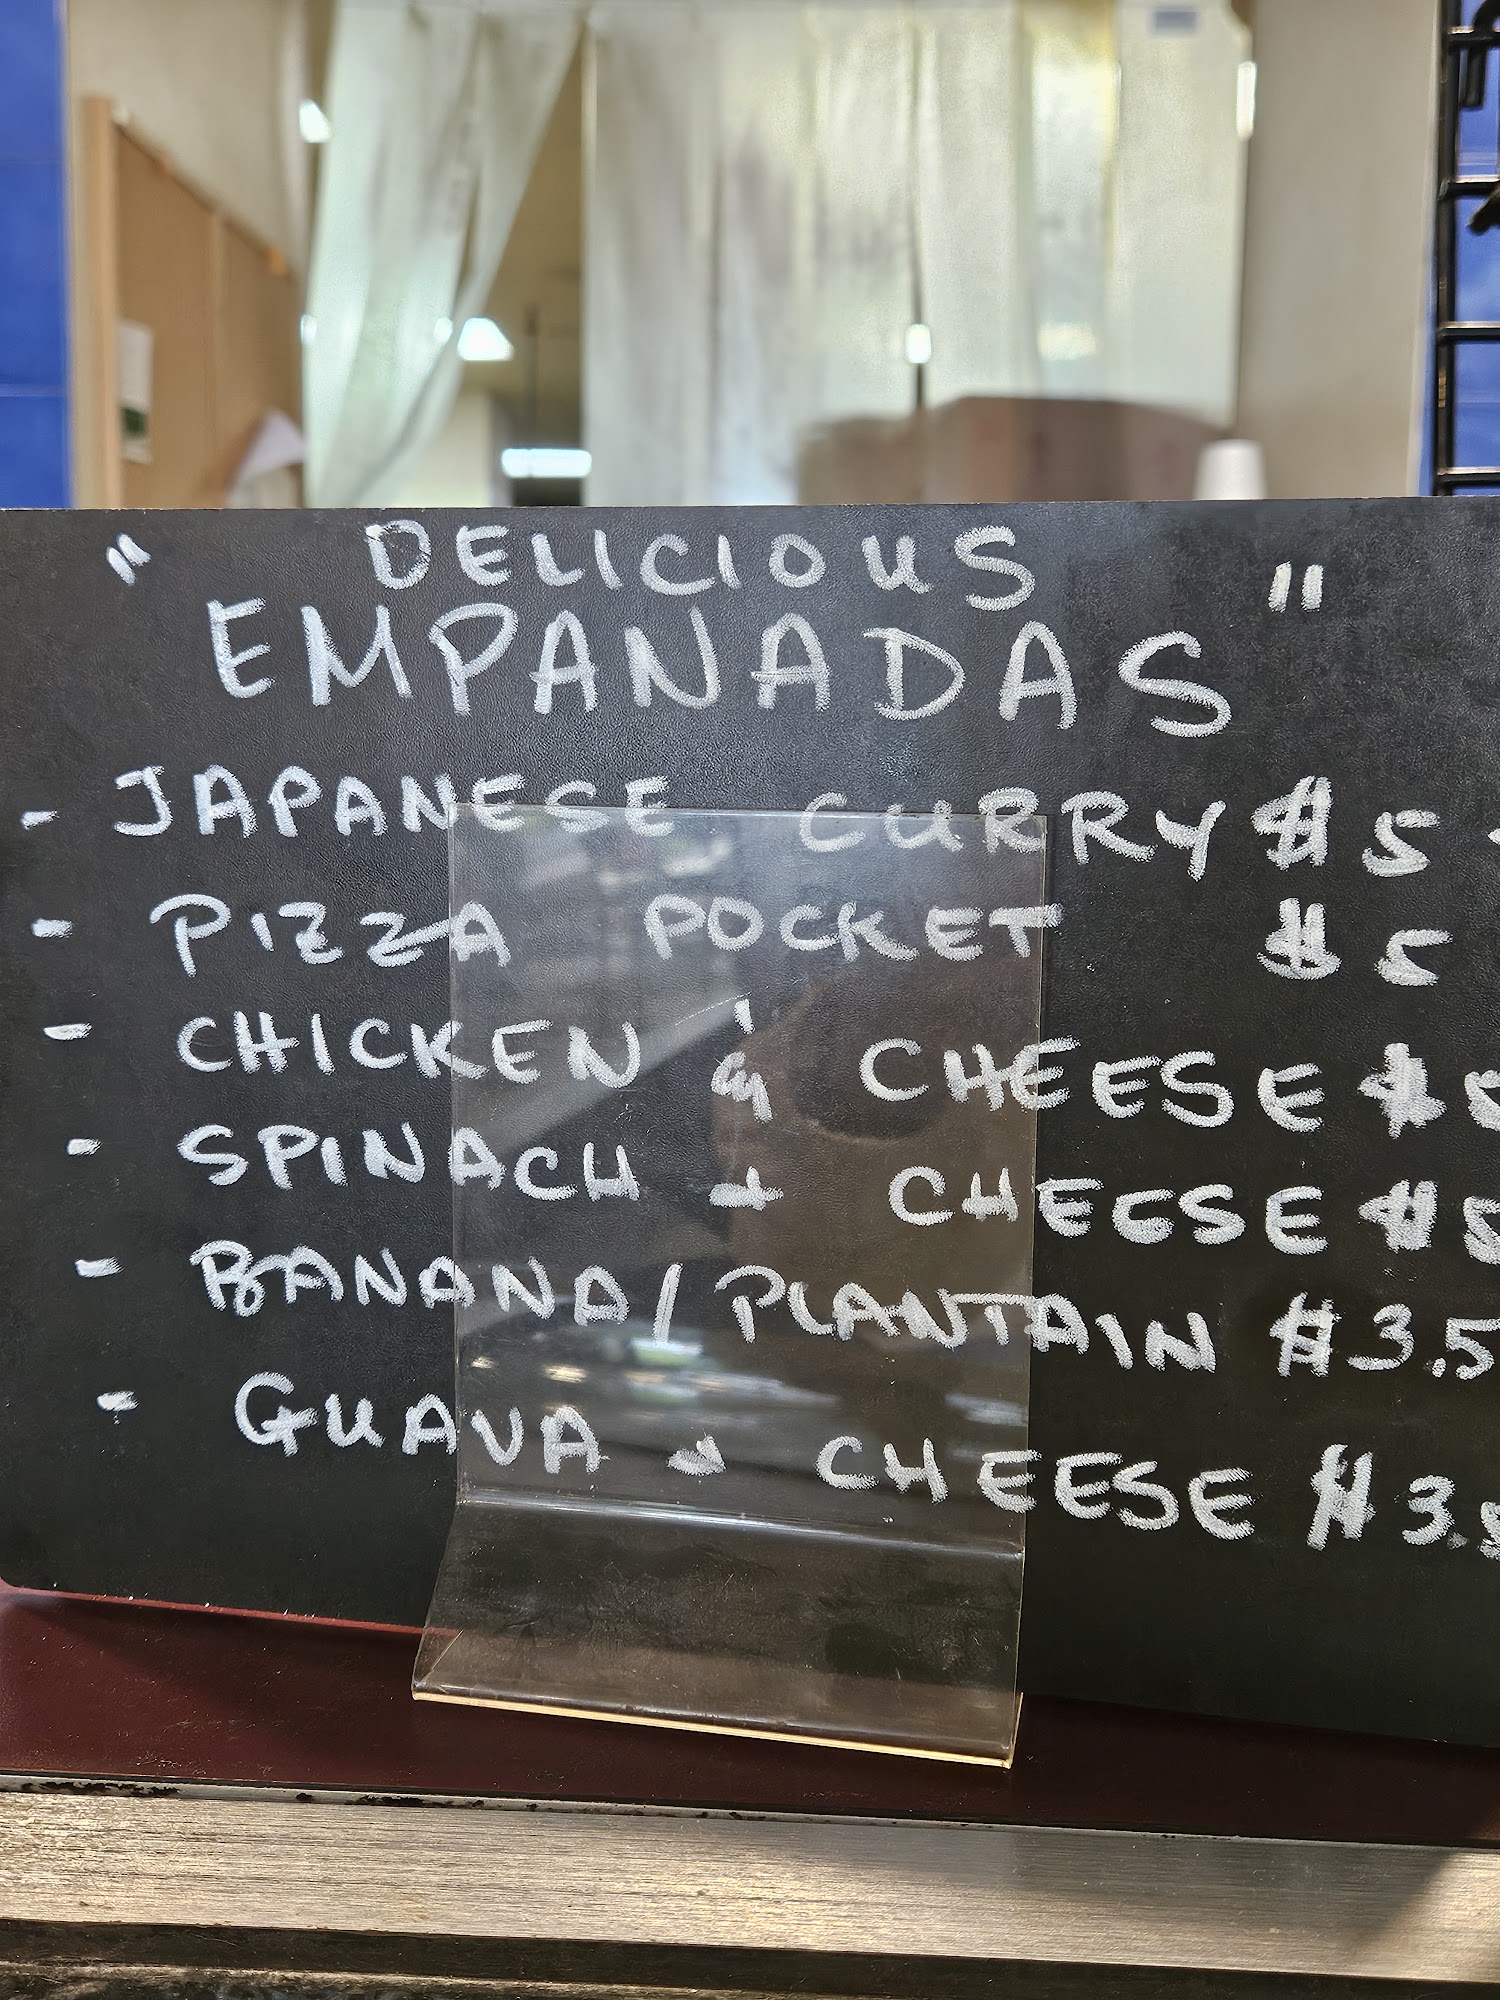 " DELICIOUS "
EMPANADAS
- JAPANESE CURRY $5
- PIZZA POCKET $5
- CHICKEN & CHEESE $
- SPINACH + CHEESE $5
- BANANA/PLANTAIN $3.5
- GUAVA + CHEESE $3.